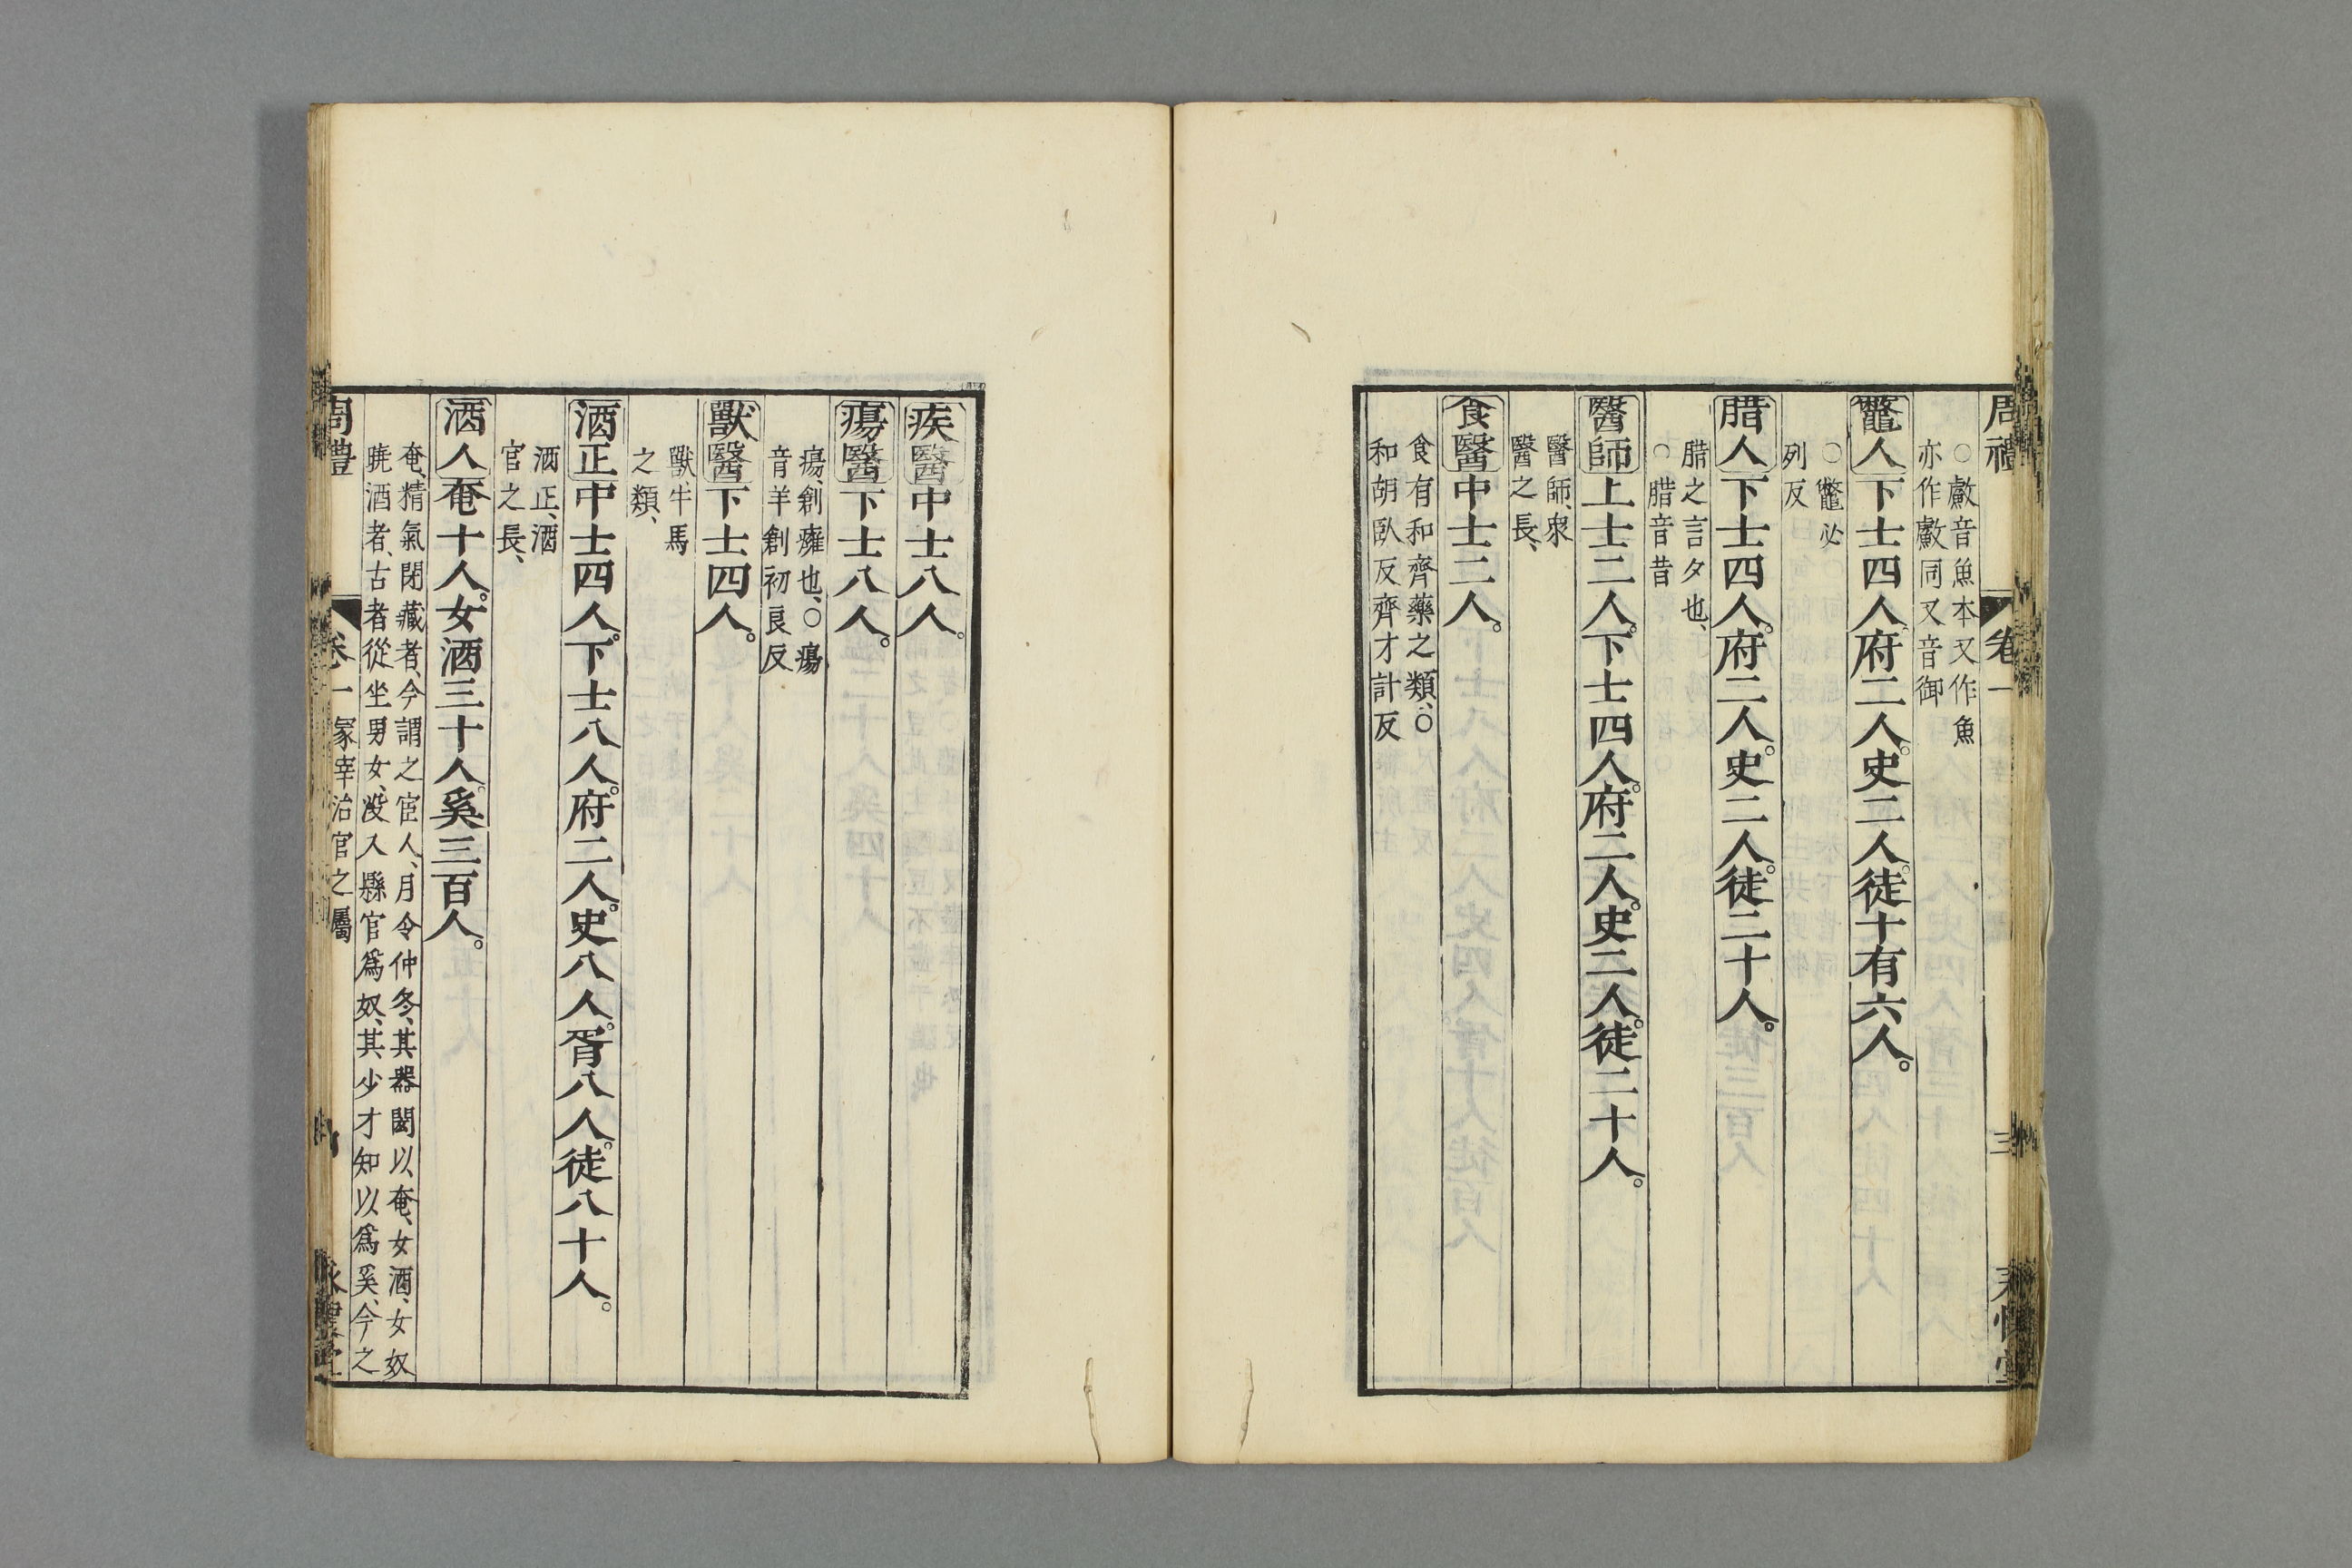 周禮 卷一 三
○䱷音魚本又作魚
亦作䱷同又音御
鼈人下士四人府二人。史二人。徒十有六人。
○鼈必
列反
腊人下士四人。府二人。史二人。徒二十人。
腊之言夕也、
○腊音昔
醫師上士二人。下士四人。府二人。史二人。徒二十人。
醫師、衆
醫之長、
食醫中士二人。
食有和齊藥之類、○
和胡臥反齊才計反
疾醫中士八人。
瘍醫下士八人。
瘍、創癰也、○瘍
音羊創初良反
獸醫下士四人。
獸、牛馬
之類、
酒正中士四人。下士八人。府二人。史八人。胥八人。徒八十人。
酒正、酒
官之長、
酒人奄十人。女酒三十人。奚三百人。
奄、精氣閉藏者、今謂之宦人、月令仲冬、其器閎以奄、女酒、女奴
曉酒者、古者從坐男女、沒入縣官爲奴、其少才知以爲奚、今之
周禮 卷一 冢宰治官之屬 永懷堂